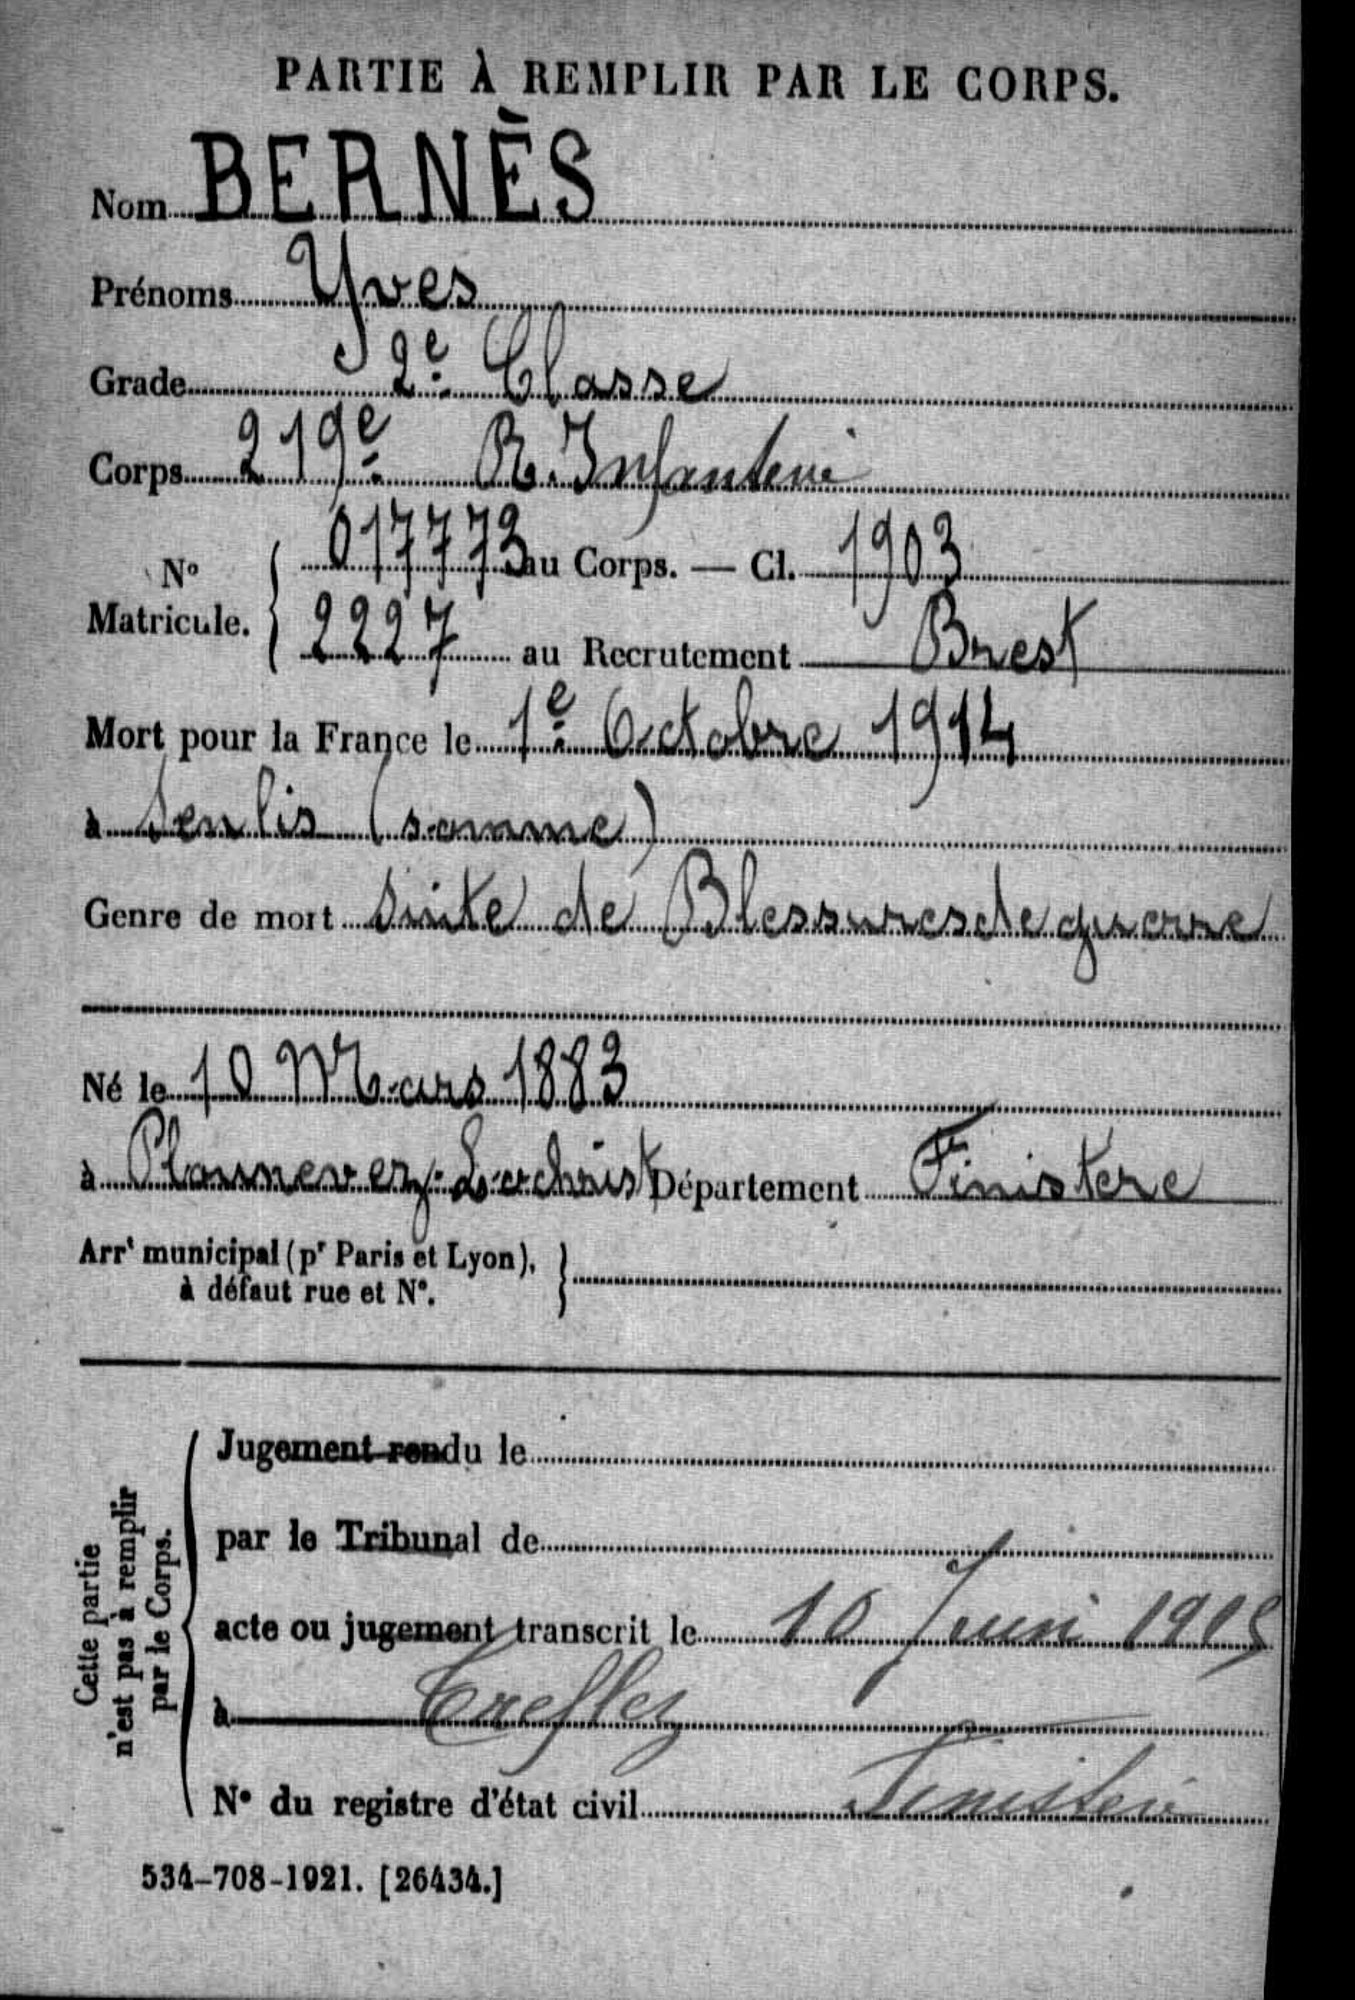 PARTIE À REMPLIR PAR LE CORPS.
Nom BERNÈS
Prénoms Yves
Grade 2e Classe
Corps 219e R. Infanterie
N° Matricule. { 017773 au Corps. — Cl. 1903
2227 au Recrutement Brest
Mort pour la France le 1e Octobre 1914
à Senlis (somme)
Genre de mort Suite de Blessures de guerre
Né le 10 Mars 1883
à Plounevez-Lochrist Département Finistere
Arrt municipal (pr Paris et Lyon),
à défaut rue et N°.
Cette partie
n'est pas à remplir
par le Corps.
Jugement rendu le
par le Tribunal de
acte ou jugement transcrit le 10 Juin 1915
à Treflez
N° du registre d'état civil Finistère
534-708-1921. [26434.]